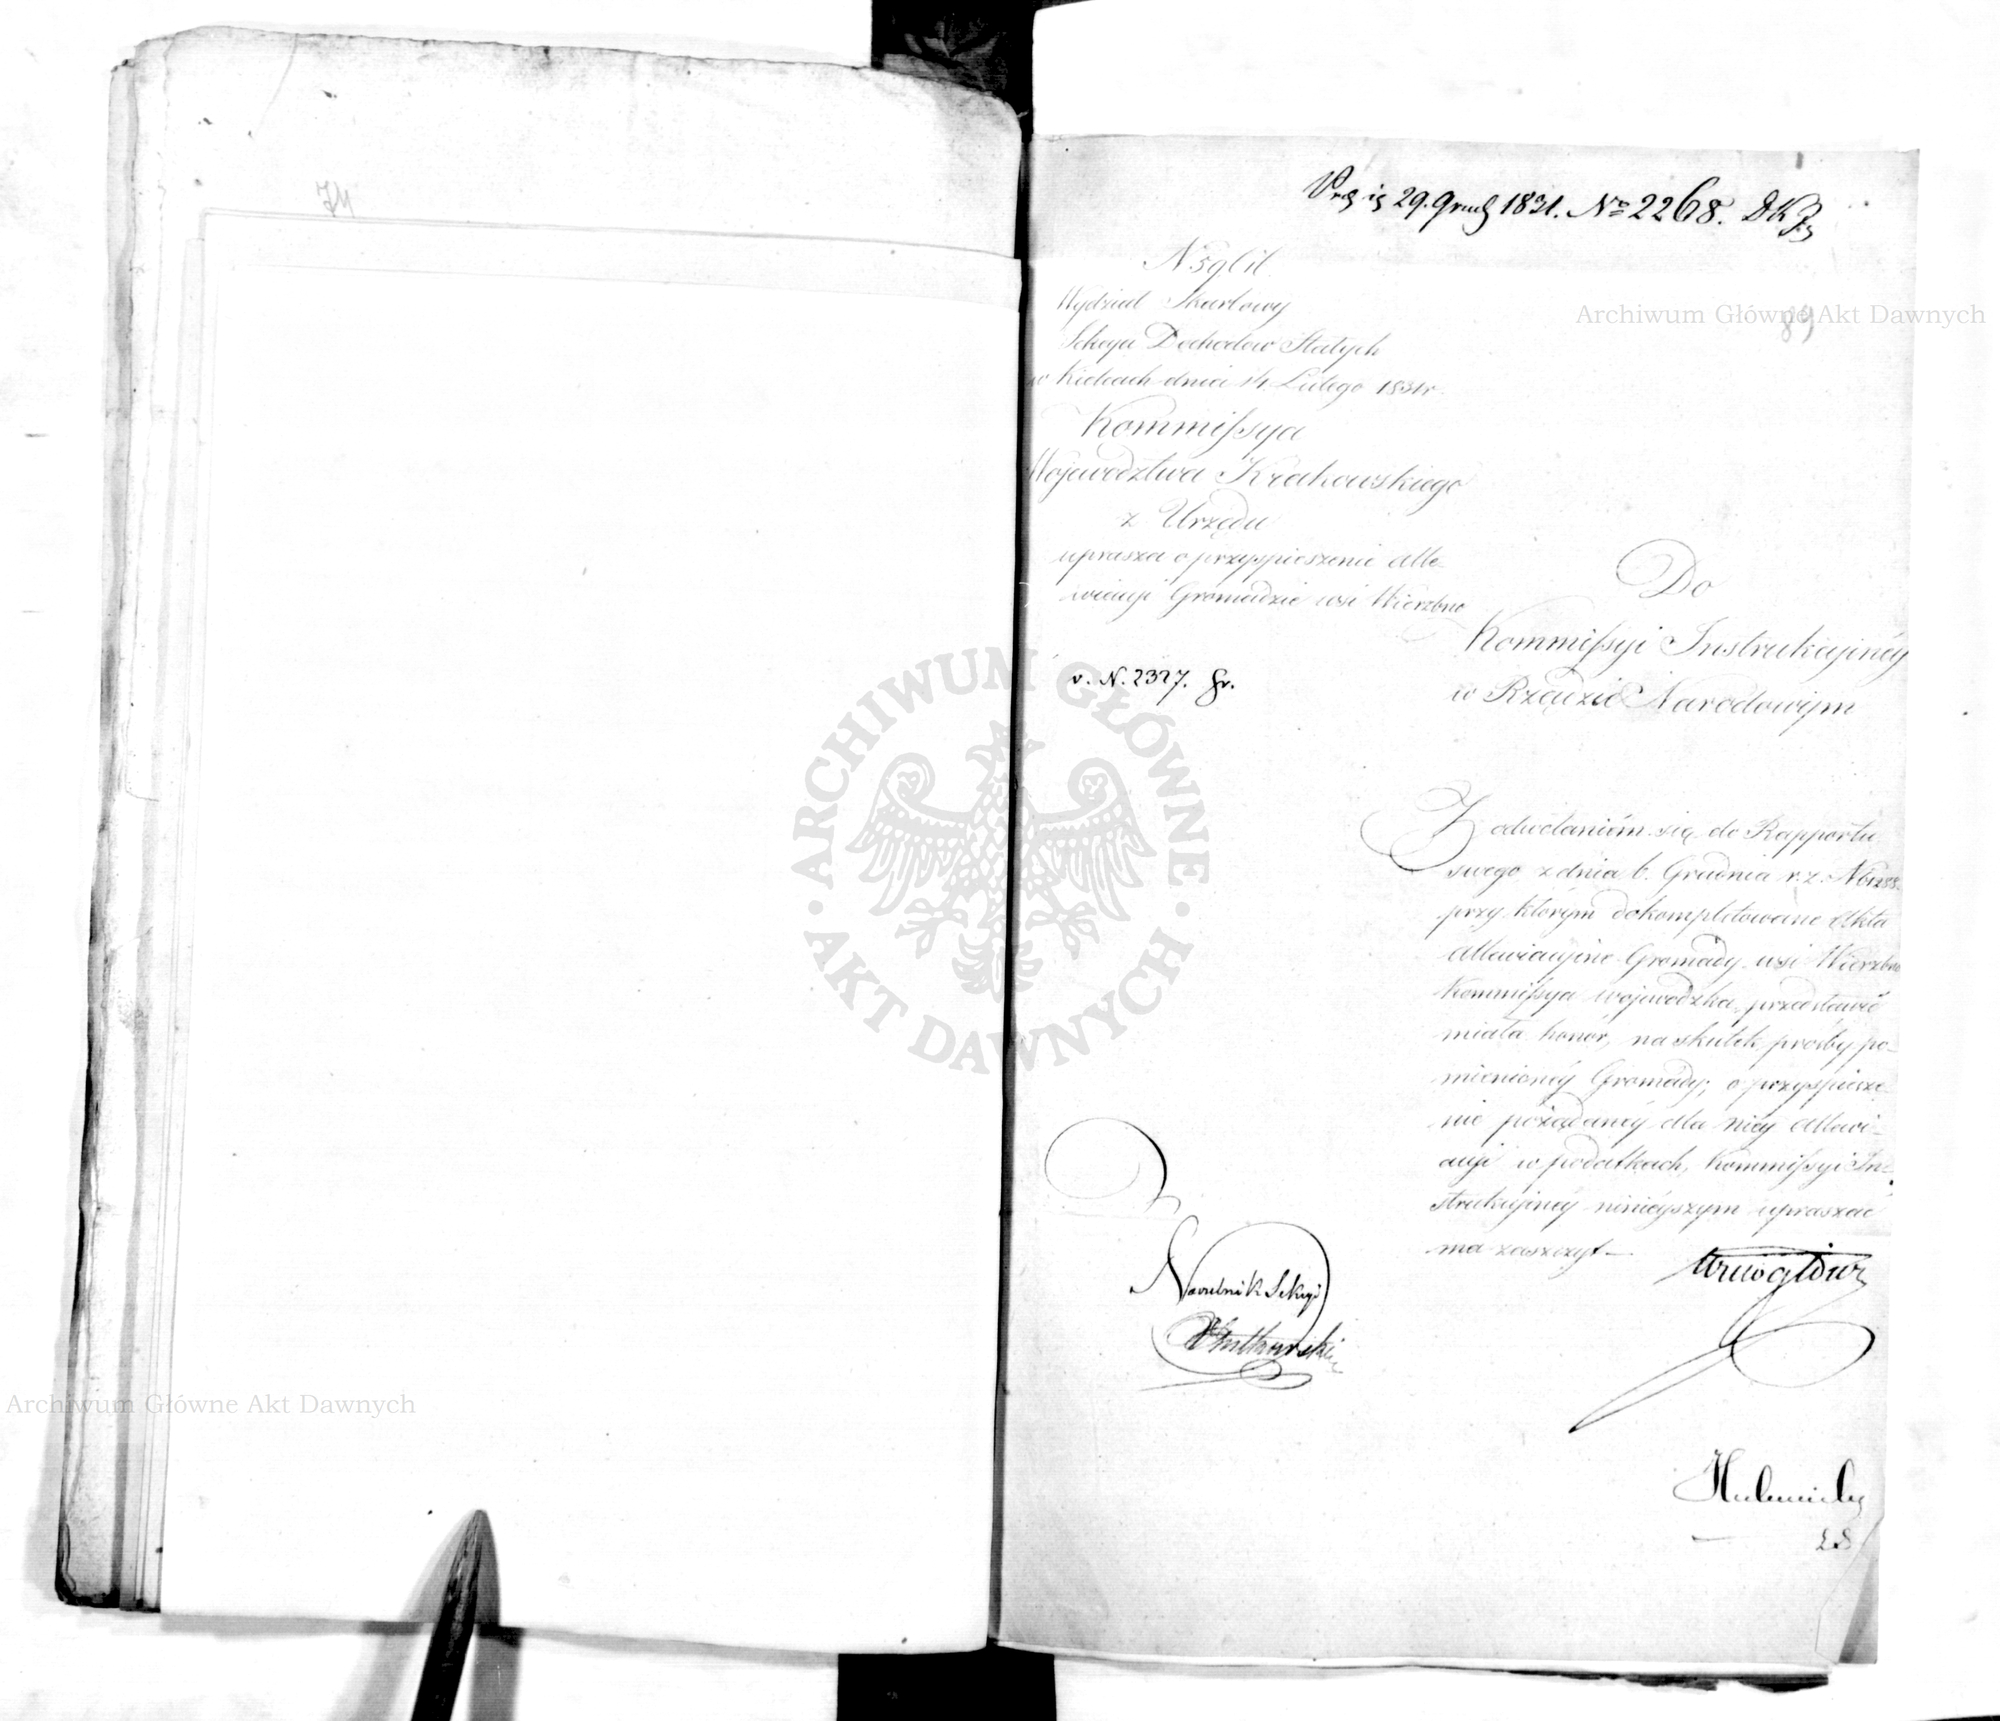 74
29. Grud 1831. No 2268. DKP
89
Wydział Skarbowy
Sekcya Dochodów Stałych
w Kielcach dnia 14. Lutego 1831 r.
Kommissya
Województwa Krakowskiego
z Urzędu
uprasza o przyspieszenie alle-
wiacyi Gromadzie wsi Wierzbno
v. N. 2327.
Do
Kommissyi Instrukcyinéy
w Rządzie Narodowym
Z odwołaniém się do Rapportu
swego z dnia 6. Grudnia r. z. N 61288.
przy którym dokompletowane Akta
allewiacyine Gromady wsi Wierzbno
Kommissya wojewódzka przedstawić
miała honor, na skutek prośby po-
mienionéy Gromady; o przyspiesze-
nie pożądanéy dla niéy allewi-
acyi w podatkach, Kommissyi In-
strukcyinéy niniéyszym upraszać
ma zaszczyt —
Naczelnik Sekcyi
LS
Archiwum Główne Akt Dawnych
Archiwum Główne Akt Dawnych
ARCHIWUM GŁÓWNE
AKT DAWNYCH